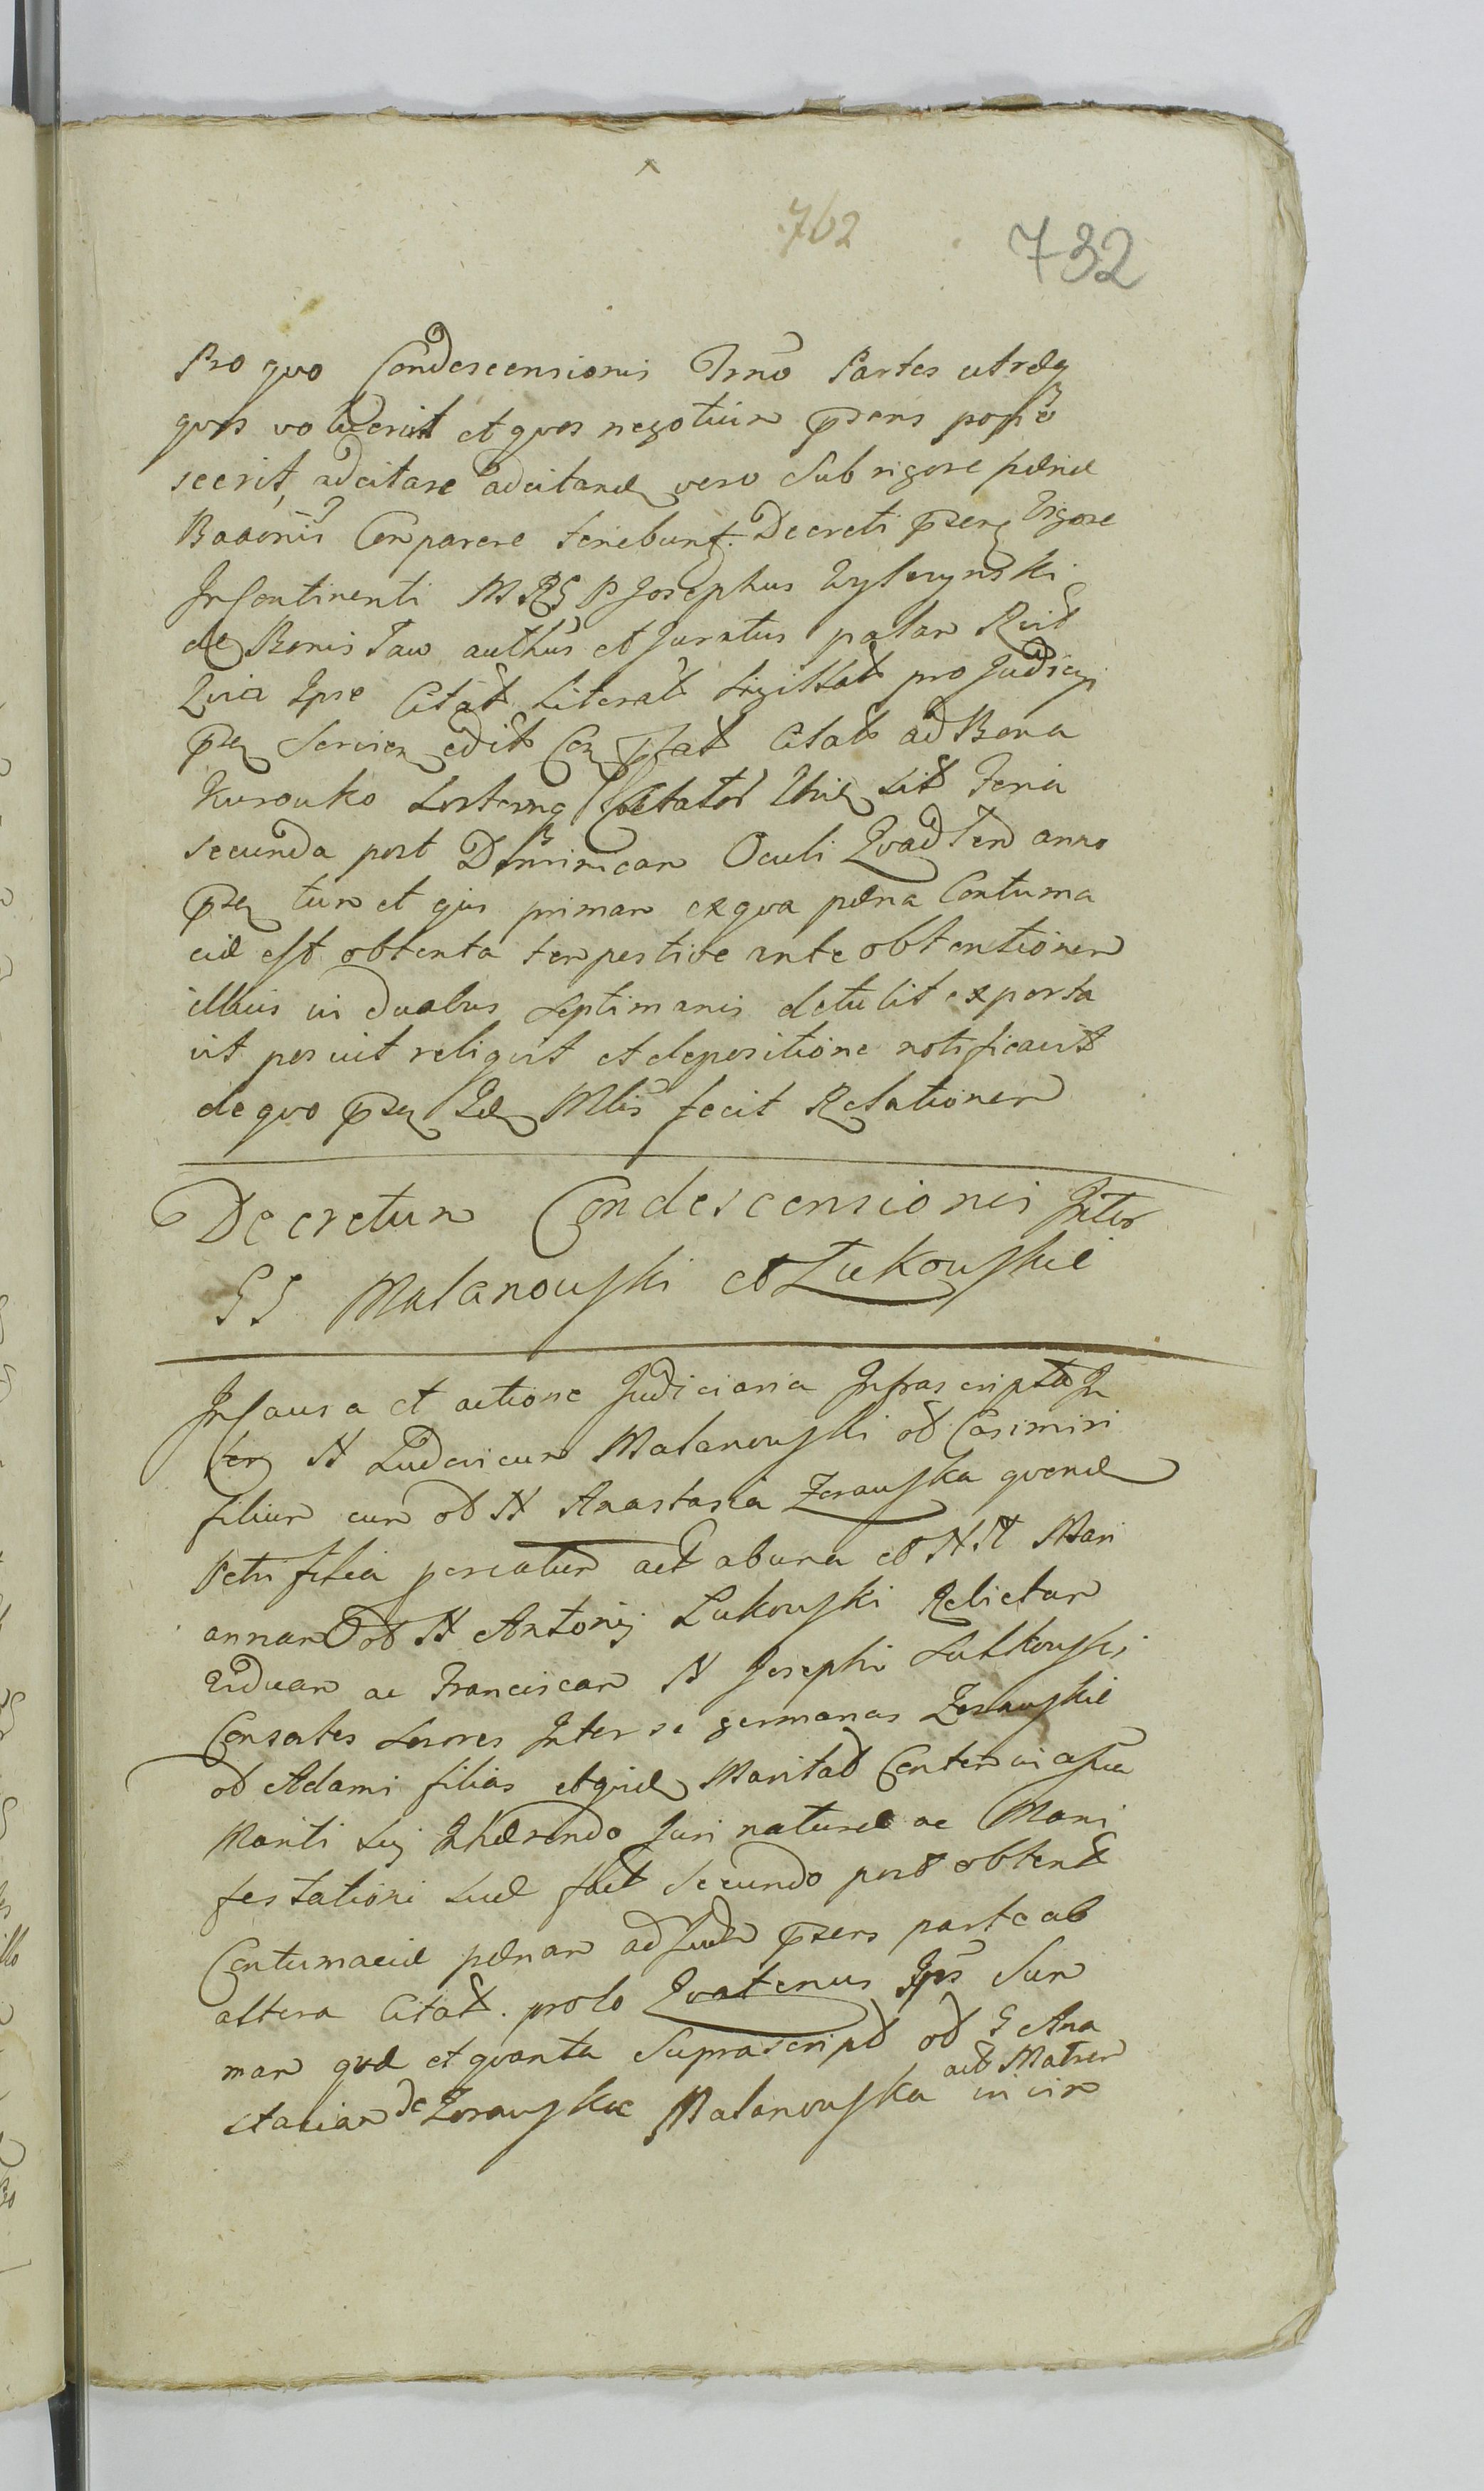 762
732
Pro quo Condescensionis Trno Partes utræq
quos voluerit et quos negotium pzens popo
scerit, adcitare adcitandæ vero Sub rigore pænæ
Banonis Comparere tenebunt. Decreti pzen Vigore
In Continenti M RG P Josephus
de Bonis Taw authus et Juratus palam
Quia Ipse Citat Literat Sigillat pro Judicy
pzn Servien edit Con Citat ad Bona
Kurowko Feria
secunda post Dominicam Oculi Quad Tem anno
pzn tum et ejus primam ex qua pæna Contuma
ciæ est obtenta tempestive ante obtentionem
illius in duabus Septimanis detulit exporta
vit posuit reliquit et depositione notificavit
de quo pzn Id Mlis fecit Relationem
Decretum Condescensionis Inter
GG Malanowski et Łukowskie
In Causa et actione Judiciaria Infrascripta In
ter N Ludovicum Malanowski ol Casimiri
filium cum ol N Anastasia Zerawska quond
Petri filia procreatum act ab una et N N Mari
annam ol N Antonij Łukowski Relictam
Viduam ac Franciscam N Josephi Sutkowski
Consortes Sorores Inter se germanas Zerawskie
ol Adami filias et quæ Maritat Conten in assia
Mariti Sui Inhærendo Juri naturæ ac Mani
festationi Suæ fact Secundo post obtent
Contumaciæ pænam ad Jud pzens parte ab
altera Citat. prolo Quatenus Ips Sum
mam quæ et quanta Suprascript ol G Ana
stasiam de Zerawskie Malanowska act Matrem in vim